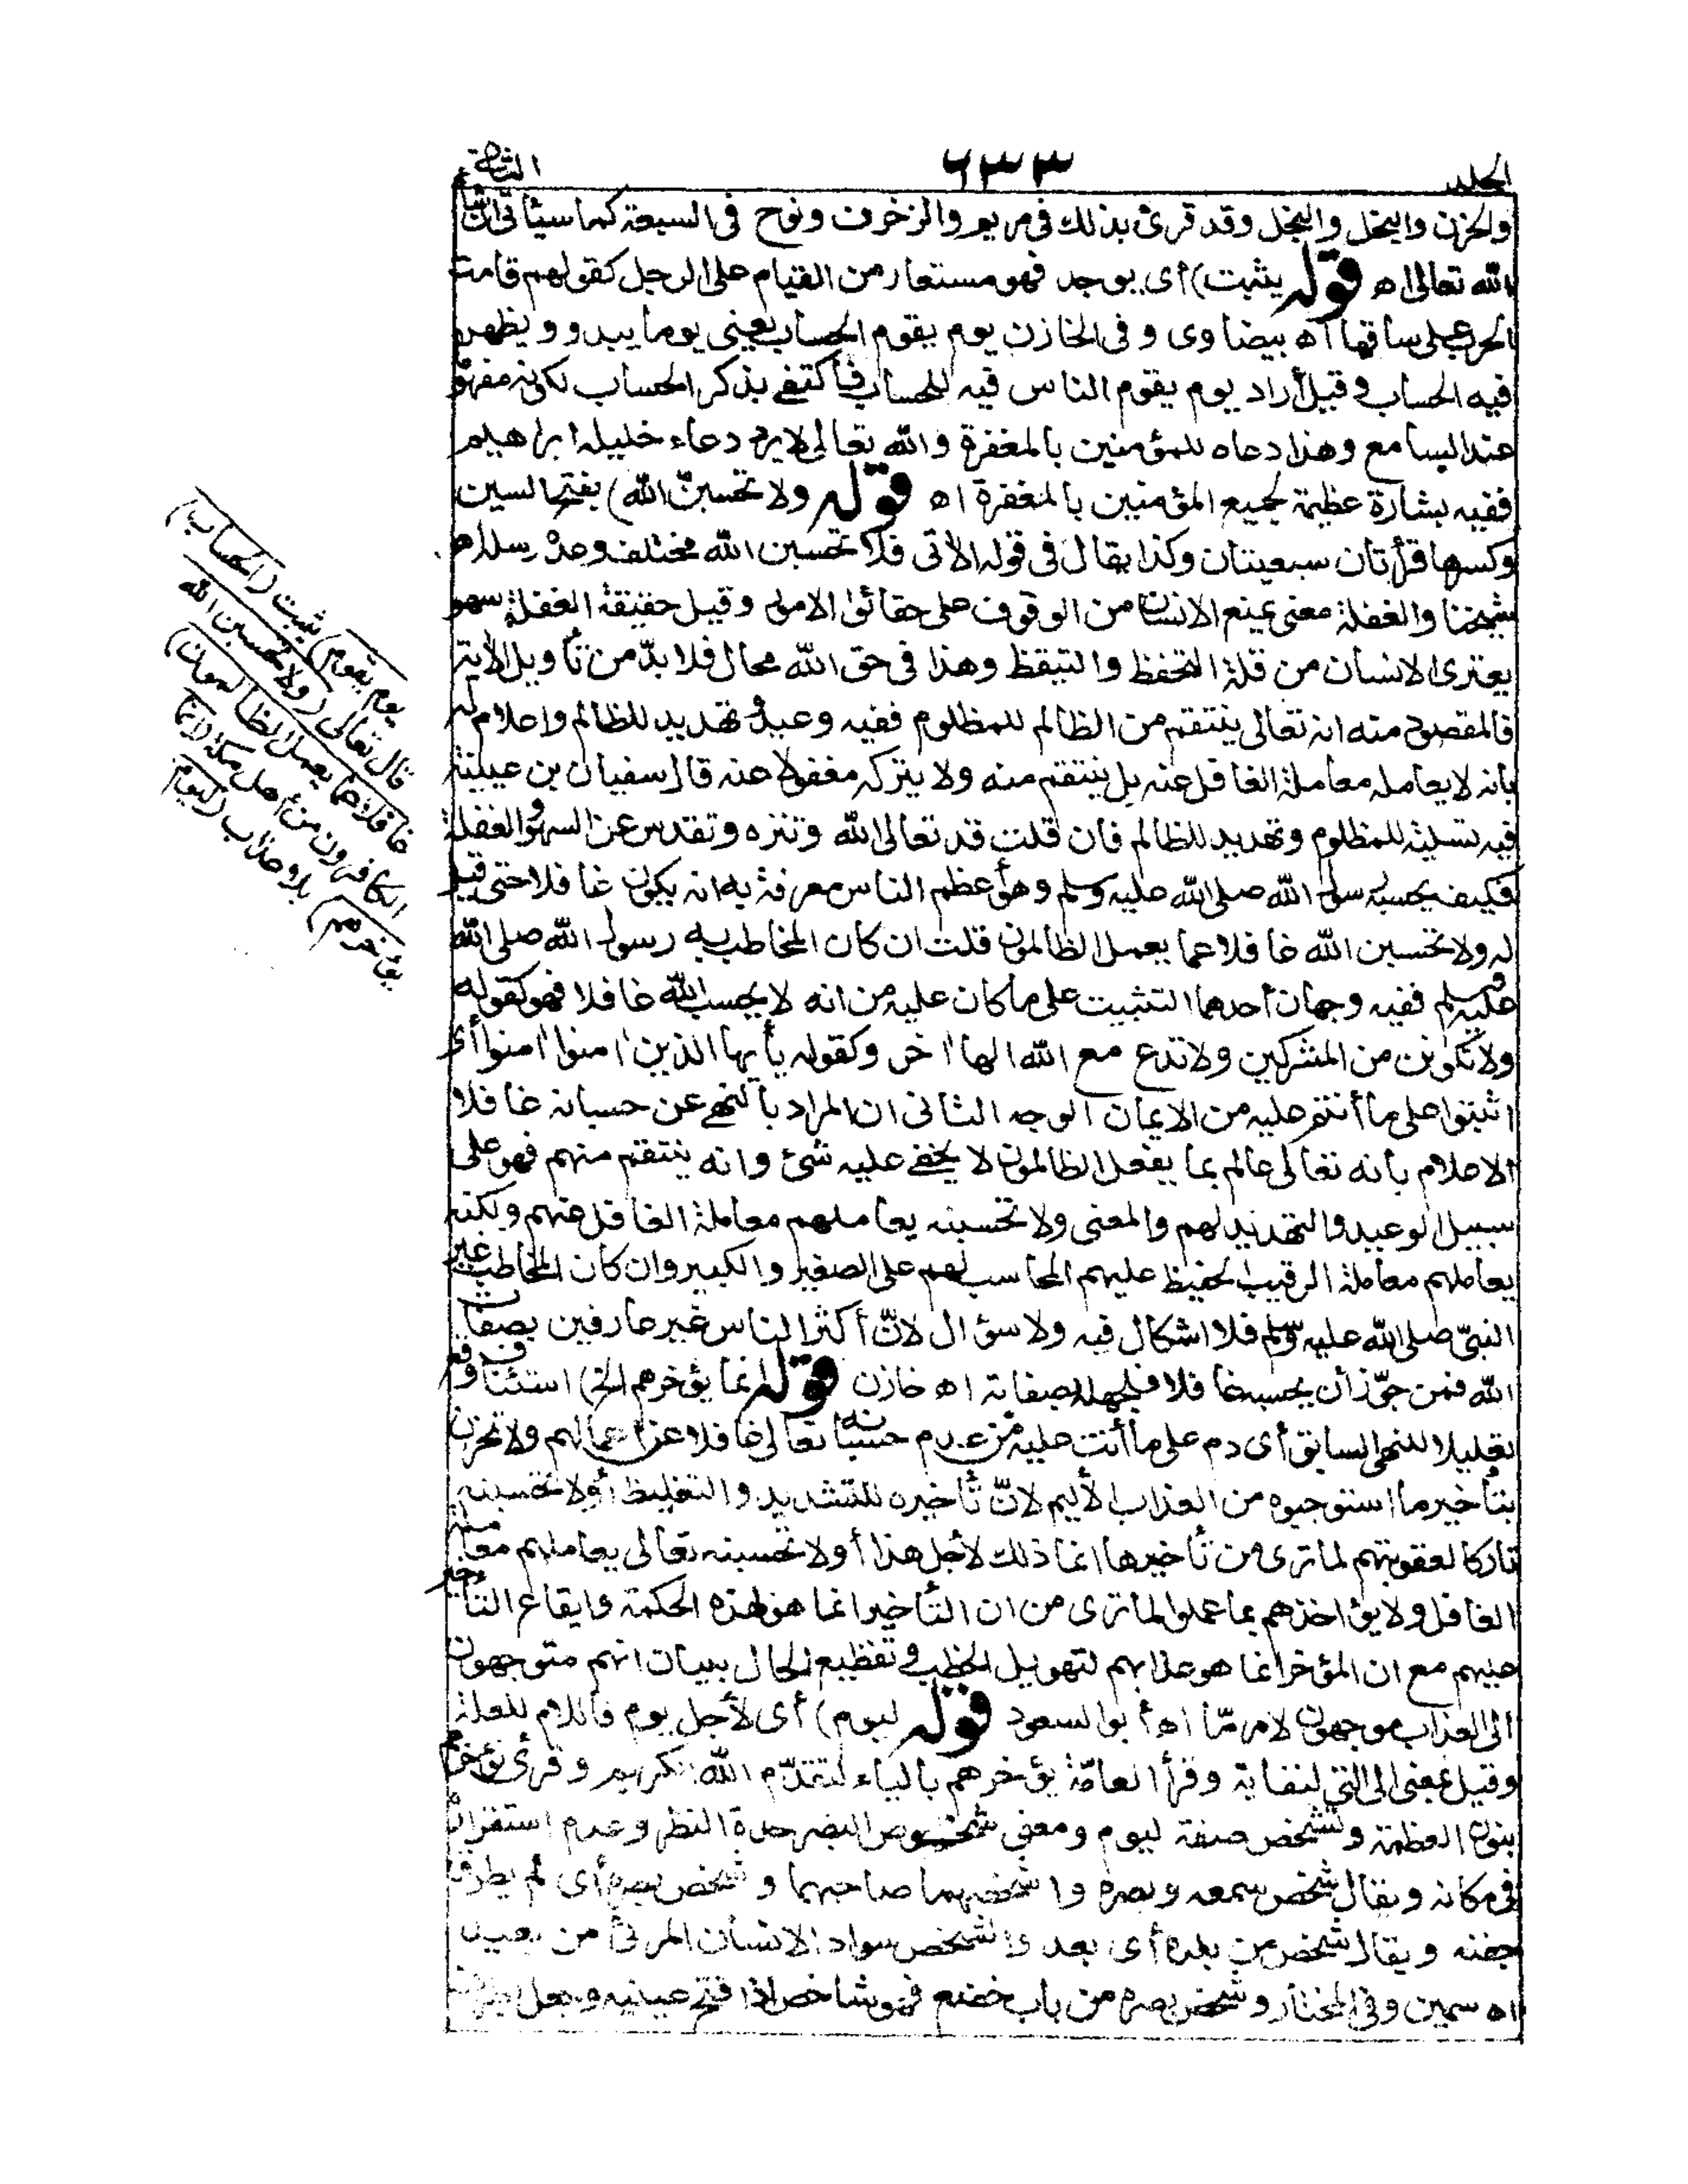 الجلد ٦٣٣ الثانى
والحزن والبخل والبخل وقد قرئ بذلك فى مريم والزخرف ونوح فى السبعة كما سيأتى ان شاء
الله تعالى اه قوله يثبت) أى يوجد فهو مستعار من القيام على الرجل كقولهم قامت
الحرب على ساقها اه بيضاوى وفى الخازن يوم يقوم الحساب يعنى يوما يبدو ويظهر
فيه الحساب وقيل أراد يوم يقوم الناس فيه للحساب فأكتفے بذكر الحساب لكونه مفهوما
عند السامع وهذا دعاء للمؤمنين بالمغفرة والله تعالى لا يرد دعاء خليله ابراهيم
ففيه بشارة عظيمة لجميع المؤمنين بالمغفرة اه قوله ولا تحسبنّ الله) بفتح السين
وكسرها قرأتان سبعيتان وكذا يقال فى قوله الآتى فلا تحسبن الله مختلف وعده رسله اه
شيخنا والغفلة معنى يمنع الانسان من الوقوف على حقائق الامور وقيل حقيقة الغفلة سهو
يعترى الانسان من قلة التحفظ والتيقظ وهذا فى حق الله محال فلا بدّ من تأويل الآية
فالمقصود منه انه تعالى ينتقم من الظالم للمظلوم ففيه وعيد وتهديد للظالم واعلام له
بانه لا يعامله معاملة الغافل عنه بل ينتقم منه ولا يتركه مغفولا عنه قال سفيان بن عيينة
فيه تسلية للمظلوم وتهديد للظالم فان قلت قد تعالى الله وتنزه وتقدس عن السهو والغفلة
فكيف يحسبه رسول الله صلى الله عليه وسلم وهو أعظم الناس معرفة به انه يكون غافلا حتى قيل
له ولا تحسبن الله غافلا عما يعمل الظالمون قلت ان كان المخاطب به رسول الله صلى الله
عليه وسلم ففيه وجهان أحدهما التثبيت على ما كان عليه من انه لا يحسب الله غافلا فهو كقوله
ولا تكونن من المشركين ولا تدع مع الله الها اخر وكقوله يأيها الذين امنوا امنوا أى
اثبتوا على ما أنتم عليه من الايمان الوجه الثانى ان المراد بالنهے عن حسبانه غافلا
الاعلام بأنه تعالى عالم بما يفعل الظالمون لا يخفے عليه شئ وانه ينتقم منهم فهو على
سبيل الوعيد والتهديد لهم والمعنى ولا تحسبنه يعاملهم معاملة الغافل عنهم ولكنه
يعاملهم معاملة الرقيب الحفيظ عليهم المحاسب لهم على الصغير والكبير وان كان المخاطب غير
النبىّ صلى الله عليه وسلم فلا اشكال فيه ولا سؤال لانّ أكثر الناس غير عارفين بصفات
الله فمن جوّز أن يحسبه غافلا فلجهله بصفاته اه خازن قوله انما يؤخرهم الخ) استئناف وقع
تعليلا للنهى السابق أى دم على ما أنت عليه من عدم حسبانه تعالى غافلا عن أعمالهم ولا تحزن
بتأخير ما استوجبوه من العذاب الأليم لانّ تأخيره للتشديد والتغليظ أو لا تحسبنه
تاركا لعقوبتهم لما ترى من تأخيرها انما ذلك لأجل هذا أو لا تحسبنه تعالى يعاملهم معاملة
الغافل ولا يؤاخذهم بما عملوا لما ترى من ان التأخير انما هو لهذه الحكمة وايقاع التأخير
عليهم مع ان المؤخر انما هو عذابهم لتهويل الخطب وتفظيع الحال ببيان انهم متوجهون
الى العذاب موجهون لامر مّا اه أبو السعود قوله ليوم) أى لأجل يوم فاللام للعلة
وقيل بمعنى الى التى للغاية وقرأ العامّة يؤخرهم بالياء لتقدّم الله الكريم وقرئ نؤخرهم
بنون العظمة وتشخص صفة ليوم ومعنى شخوص البصر حدة النظر وعدم استقراره
فى مكانه ويقال شخص سمعه وبصره واشخصهما صاحبهما وشخص بصره أى لم يطرف
جفنه ويقال شخص من بلده أى بعد والشخص سواد الانسان المرئى من بعيد
اه سمين وفى المختار وشخص بصره من باب خضع فهو شاخص اذا فتح عينيه وجعل
يوم يقوم) يثبت (الحساب)
قال تعالى (ولا تحسبن الله
غافلا عما يعمل الظالمون)
الكافرون من أهل مكة (انما
يؤخرهم) بلا عذاب (ليوم